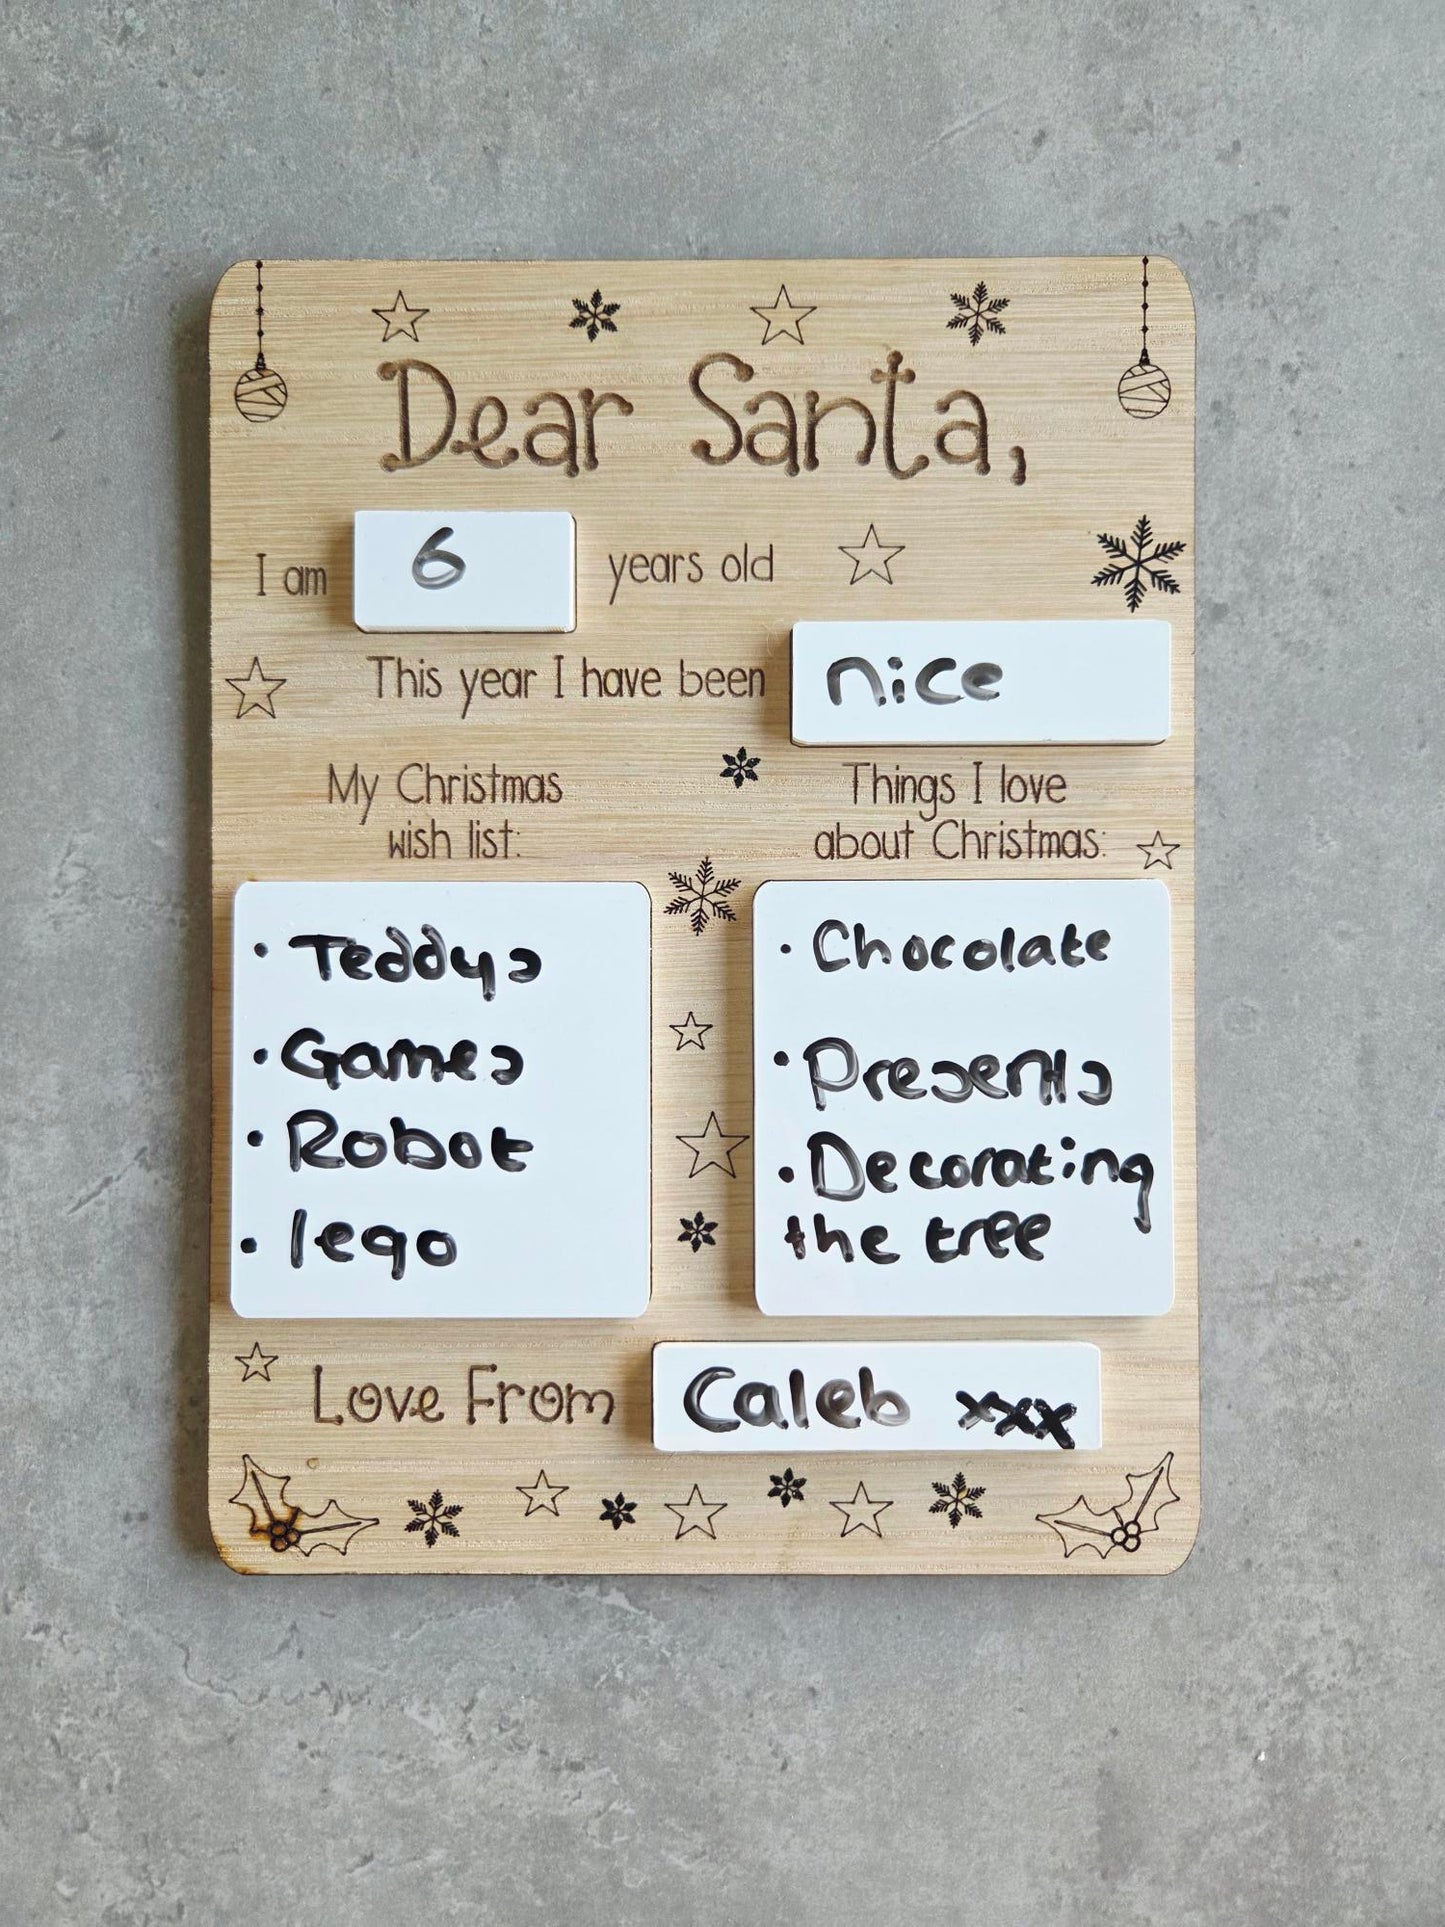 Dear Santa,
I am 6 years old
This year I have been nice
My Christmas
wish list:
• Teddys
• Games
• Robot
• lego
Things I love
about Christmas:
• Chocolate
• Presents
• Decorating
the tree
Love From Caleb xxx